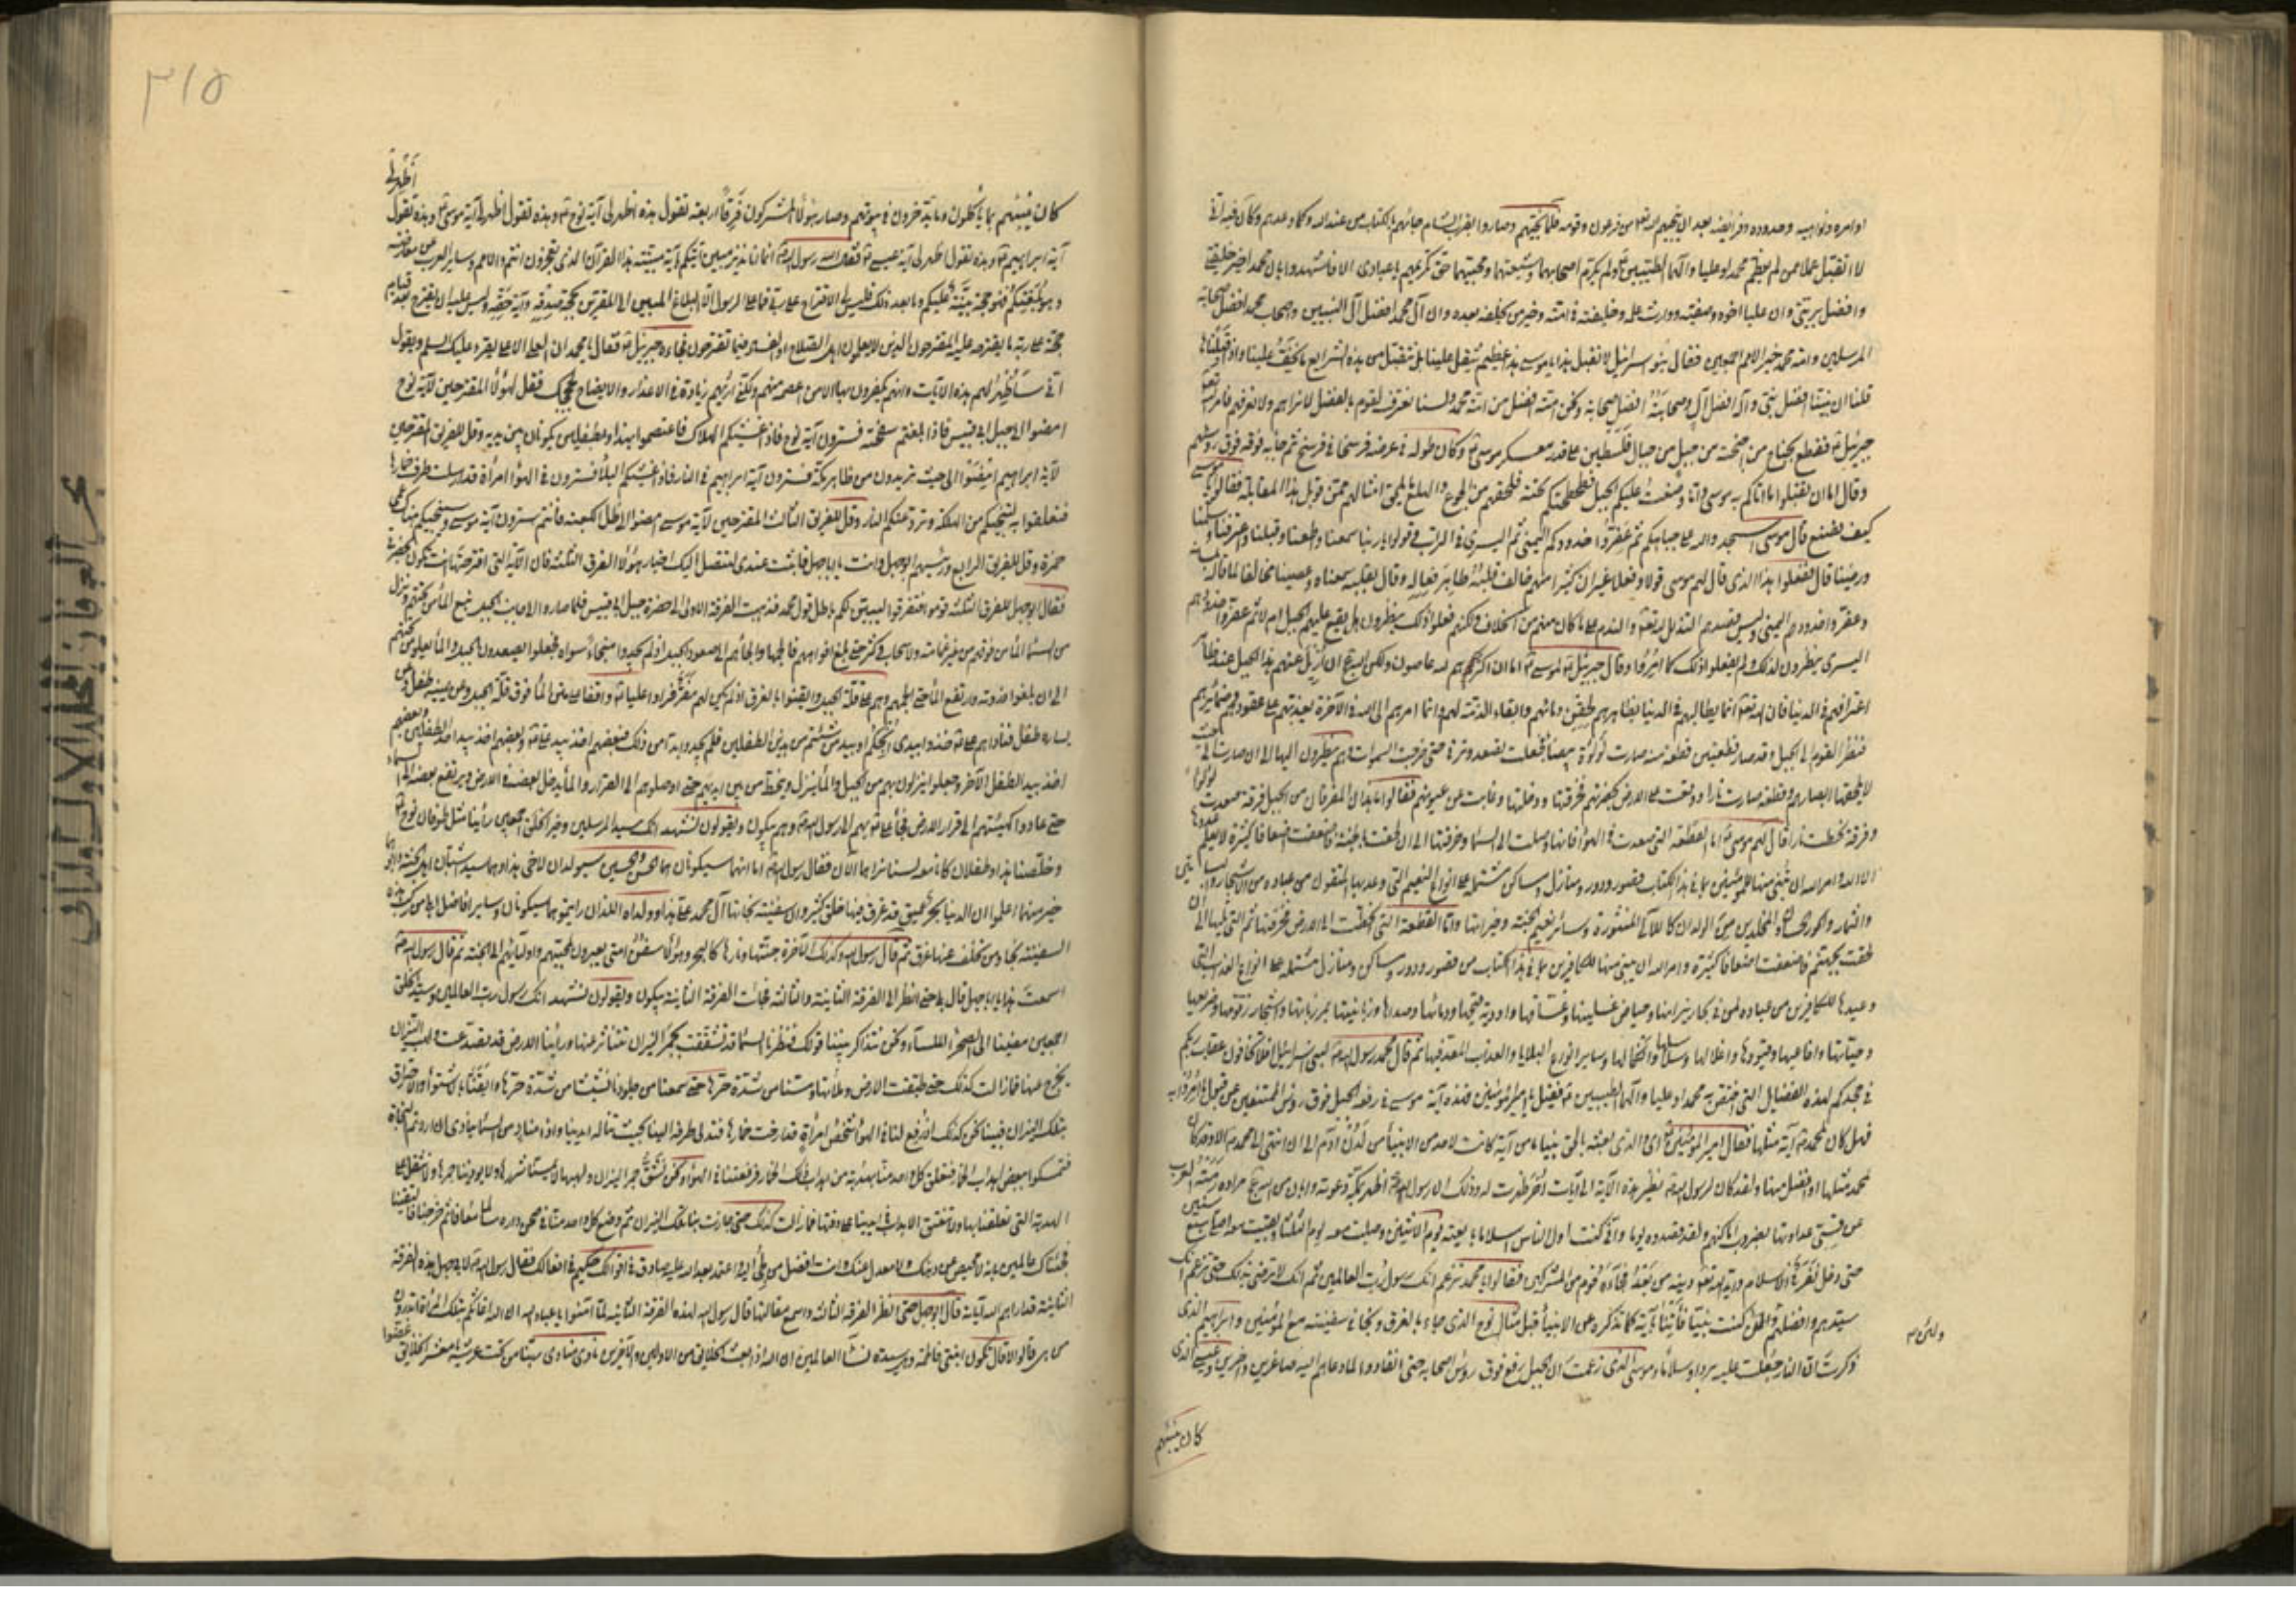 اوامره ونواهيه وحدوده وفرايضه بعد ان ينجيهم الله تعم من فرعون وقومه فلما نجيهم وصاروا بقرب الشام جائهم بالكتاب من عند الله كما وعدهم وكان فيه انى
لا اتقبل عملا ممن لم يعظم محمدا وعليا وآلهما الطيبين ولم يكرم اصحابهما وشيعتهما ومحبيهما حق تكريمهم يا عبادى الا فاشهدوا بان محمدا خير خليقتى
وافضل بريتى وان عليا اخوه وصفيه ووارث علمه وخليفته فى امته وخير من يخلفه بعده وان آل محمد افضل آل النبيين واصحاب محمد افضل صحابة
المرسلين وامة محمد خير الامم اجمعين فقال بنو اسرائيل لا نقبل هذا يا موسى هذا عظيم يثقل علينا بل نتقبل من هذه الشرايع ما يخف علينا واذ قبلناها
قلنا ان نبينا افضل نبى وآله افضل آل وصحابته افضل صحابة ونحن امته افضل من امة محمد ولسنا نعترف لقوم بالفضل لا نراهم ولا نعرفهم فامر الله تعم
جبرئيل فقطع بجناح من اجنحته من جبل من جبال فلسطين على قدر معسكر موسى وكان طوله فى عرضه فرسخا فى فرسخ ثم جاء به فوقه فوق رؤسهم
وقال اما ان تقبلوا ما اتاكم به موسى واما وضعت عليكم الجبل فطحطحتكم تحته فلحقهم من الجزع والهلع ما يلحق امثالهم ممن قوبل بهذا المقابلة فقالوا يا موسى
كيف نصنع قال موسى اسجدوا لله على جباهكم ثم عفروا خدودكم اليمنى ثم اليسرى فى التراب وقولوا يا ربنا سمعنا واطعنا وقبلنا واعترفنا وسلمنا
ورضينا قال ففعلوا هذا الذى قال لهم موسى قولا وفعلا غير ان كثيرا منهم خالف قلبه ظاهر فعاله وقال بقلبه سمعنا وعصينا مخالفا لما قاله بلسانه
وعفروا خدودهم اليمنى وليس قصدهم التذلل لله تعم والندم على ما كان منهم من الخلاف ولكنهم فعلوا ذلك ينظرون هل يقع عليهم الجبل ام لا ثم عفروا خدودهم
اليسرى ينظرون كذلك ولم يفعلوا ذلك كما امروا وقال جبرئيل لموسى اما ان اكثرهم لله عاصون ولكن الله امرنى ان ازيل عنهم هذا الجبل عند ظاهر
اعترافهم فى الدنيا فان الله تعم انما يطالبهم فى الدنيا بظواهرهم لحقن دمائهم وابقاء الذمة لهم وانما امرهم الى الله فى الآخرة يعذبهم على عقودهم وضمائرهم
فنظر القوم الى الجبل وقد صار قطعتين قطعة منه صارت لؤلؤة بيضاء فجعلت تصعد وترقى حتى خرقت السموات وهم ينظرون اليها الى ان صارت الى حيث
لا يلحقها ابصارهم وقطعة صارت نارا ووقعت على الارض بحضرتهم فخرقتها ودخلتها وغابت عن عيونهم فقالوا ما هذان المفترقان من الجبل فرقة صعدت لؤلؤا
وفرقة انحطت نارا قال لهم موسى اما القطعة التى صعدت فى الهواء فانها وصلت الى السماء وخرقتها الى ان لحقت بالجنة فاضعفت اضعافا كثيرة لا يعلم عددها
الا الله وامر الله ان تبنى منها للمؤمنين بما فى هذا الكتاب قصور ودور ومنازل ومساكن مشتملة على انواع النعيم التى وعد بها المتقون من عباده من الاشجار والبساتين
والثمار والحور الحسان والمخلدين من الولدان كاللآلى المنثورة وسائر نعيم الجنة وخيراتها واما القطعة التى انحطت الى الارض فخرقتها ثم التى تليها الى ان
لحقت بجهنم فاضعفت اضعافا كثيرة وامر الله ان يبنى منها للكافرين بما فى هذا الكتاب من قصور ودور ومساكن ومنازل مشتملة على انواع العذاب التى
وعدها للكافرين من عباده من بحار نيرانها وحياض غسلينها وغساقها واودية قيحها ودمائها وصديدها وزبانيتها بمرزباتها واشجار زقومها وضريعها
وحياتها وافاعيها وقيودها واغلالها وسلاسلها وانكالها وساير انواع البلايا والعذاب المعد فيها ثم قال محمد رسول الله لبنى اسرائيل افلا تخافون عقاب ربكم
فى جحدكم لهذه الفضايل التى اختص بها محمدا وعليا وآلهما الطيبين فقيل يا امير المؤمنين فهذه آية موسى فى رفعه الجبل فوق رؤس الممتنعين عن قبول ما امروا به
فهل كان لمحمد آية مثلها فقال امير المؤمنين اى والذى بعثه بالحق نبيا ما من آية كانت لاحد من الانبياء من لدن آدم الى ان انتهى الى محمد الا وقد كان
لمحمد مثلها او افضل منها ولقد كان لرسول الله نظير هذه الآية الى آيات اخر ظهرت له وذلك ان رسول الله لما اظهر بمكة دعوته وابان عن الله مراده رمته العرب
عن قسى عداوتها بضروب امكانهم ولقد قصدته يوما وانى كنت اول الناس اسلاما بعثه يوم الاثنين وصليت معه يوم الثلثاء وبقيت معه اصلى سبع سنين
حتى دخل نفر فى الاسلام وايد الله تعم دينه من بعد فجاءه قوم من المشركين فقالوا يا محمد تزعم انك رسول رب العالمين ثم انك لا ترضى بذلك حتى تزعم انك
سيدهم وافضلهم ولئن كنت نبيا فأتنا بآية كما تذكره عن الانبياء قبلك مثال نوح الذى جاء بالغرق ونجا فى سفينته مع المؤمنين وابراهيم الذى
ذكرت ان النار جعلت عليه بردا وسلاما وموسى الذى زعمت ان الجبل رفع فوق رؤس اصحابه حتى انقادوا لما دعاهم اليه صاغرين داخرين وعيسى الذى
كان ينبئهم
٣١٥
كان ينبئهم بما ياكلون وما يدخرون فى بيوتهم وصار هؤلاء المشركون فرقا اربعة تقول هذه اظهر لى آية نوح وهذه تقول اظهر لى آية موسى وهذه تقول اظهر لى
آية ابراهيم وهذه تقول اظهر لى آية عيسى فقال رسول الله انما انا نذير مبين آتيتكم بآية مبينة هذا القرآن الذى تعجزون انتم والامم وساير العرب عن معارضته
وهو بلغتكم فهو حجة بينة عليكم وما بعد ذلك فليس لى الاقتراح على ربى فما على الرسول الا البلاغ المبين الى المقرين بحجة صدقه وآية حقه وليس عليه ان يقترح بعد قيام
حجته على ربه ما يقترحه عليه المقترحون الذين لا يعلمون هل الصلاح او الفساد فيما تقترحون فجاءه جبرئيل فقال يا محمد ان العلى الاعلى يقرء عليك السلم ويقول
انى ساظهر لهم هذه الآيات وانهم يكفرون بها الا من اعصمه منهم ولكنى اريهم زيادة فى الاعذار والايضاح لحججك فقل لهؤلاء المقترحين لآية نوح
امضوا الى جبل ابى قبيس فاذا بلغتم سفحه فسترون آية نوح فاذا غشيكم الهلاك فاعتصموا بهذا وبطفلين يكونان بين يديه وقل للفريق المقترحين
لآية ابراهيم امضوا الى حيث تريدون من ظاهر مكة فسترون آية ابراهيم فى النار فاذا غشيكم البلاء فسترون فى الهواء امرأة قد ارسلت طرف خمارها
فتعلقوا به لتنجيكم من الهلكة وترد عنكم النار وقل للفريق الثالث المقترحين لآية موسى امضوا الى ظل الكعبة فانتم سترون آية موسى وسينجيكم هناك عمى
حمزة وقل للفريق الرابع ورئيسهم ابو جهل وانت يا با جهل فاثبت عندى ليتصل اليك اخبار هؤلاء الفرق الثلثة فان الآية التى اقترحتها انت تكون بحضرتى
فقال ابو جهل للفرق الثلثة قوموا فتفرقوا ليتبين لكم باطل قول محمد فذهبت الفرقة الاولى الى حضرة جبل ابى قبيس فلما صاروا الى جانب الجبل نبع الماء من تحتهم ونزل
من السماء الماء من فوقهم من غير غمامة ولا سحاب وكثر حتى بلغ افواههم فالجمها والجأهم الى صعود الجبل اذ لم يجدوا منجا سواه فجعلوا يصعدون الجبل والماء يعلو من تحتهم
الى ان بلغوا ذروته وارتفع الماء حتى الجمهم وهم على قلة الجبل وايقنوا بالغرق اذ لم يكن لهم مفر فراوا عليا واقفا على متن الماء فوق قلة الجبل وعن يمينه طفل وعن
يساره طفل فناداهم على خذوا بيدى انجكم او بيد من شئتم من هذين الطفلين فلم يجدوا بدا من ذلك فبعضهم اخذ بيد على وبعضهم اخذ بيد احد الطفلين وبعضهم
اخذ بيد الطفل الآخر وجعلوا ينزلون بهم من الجبل والماء ينزل وينحط من بين ايديهم حتى اوصلوهم الى القرار والماء يدخل بعضه فى الارض ويرتفع بعضه الى السماء
حتى عادوا كهيئتهم الى قرار الارض فجاء على بهم الى رسول الله وهم يبكون ويقولون نشهد انك سيد المرسلين وخير الخلق اجمعين راينا مثل طوفان نوح
وخلصنا هذا وطفلان كانا معه لسنا نراهما الآن فقال رسول الله اما انهما سيكونان هما الحسن والحسين سيولدان لاخى هذا وهما سيدا شباب اهل الجنة وابوهما
خير منهما اعلموا ان الدنيا بحر عميق قد غرق فيها خلق كثير وان سفينة نجاتها آل محمد على هذا وولداه اللذان رايتموهما سيكونان وساير افاضل اهلى فمن ركب هذه
السفينة نجا ومن تخلف عنها غرق ثم قال رسول الله وكذلك الآخرة جنتها ونارها كالبحر وهؤلاء سفن امتى يعبرون بمحبيهم واوليائهم الى الجنة ثم قال رسول الله
اسمعت هذا يا با جهل قال بلى حتى انظر الى الفرقة الثانية والثالثة فجاءت الفرقة الثانية يبكون ويقولون نشهد انك رسول رب العالمين وسيد الخلق
اجمعين مضينا الى الصحراء الملساء ونحن نتذاكر بيننا قولك فنظرنا السماء قد تشققت بجمر النيران تتناثر عنها وراينا الارض قد تصدعت ولهب النيران
يخرج عنها فما زالت كذلك حتى طبقت الارض وملأتها ومسنا من شدة حرها حتى سمعنا من جلودنا نشيشا من شدة حرها وايقنا بالاشتواء والاحتراق
بتلك النيران فبينا نحن كذلك اذ رفع لنا فى الهواء شخص امرأة قد ارخت خمارها فتدلى طرفه الينا بحيث تناله ايدينا واذا مناد من السماء ينادى ان اردتم النجاة
فتمسكوا ببعض اهداب الخمار فتعلق كل واحد منا بهدبة من اهداب ذلك الخمار فرفعتنا فى الهواء ونحن نشق جمر النيران ولهبها لا يمسنا شررها ولا يؤذينا حرها ولا نثقل على
الهدبة التى تعلقنا بها ولا تنقطع الاهداب فى ايدينا على دقتها فما زالت كذلك حتى جازت بنا تلك النيران ثم وضع كل واحد منا فى صحن داره سالما معافا ثم خرجنا فالتقينا
فجئناك عالمين بانه لا محيص عن دينك ولا معدل عنك وانت افضل من لجئ اليه واعتمد بعد الله عليه صادق فى اقوالك حكيم فى افعالك فقال رسول الله لابى جهل هذه الفرقة
الثانية قد اراهم الله آياته قال ابو جهل حتى انظر الفرقة الثالثة واسمع مقالتها قال رسول الله لهذه الفرقة الثانية لما آمنوا يا عباد الله ان الله اغاثكم بتلك المرأة اتدرون
من هى قالوا لا قال تكون ابنتى فاطمة وهى سيدة نساء العالمين ان الله اذا بعث الخلايق من الاولين والآخرين نادى منادى ربنا من تحت عرشه يا معشر الخلايق غضوا